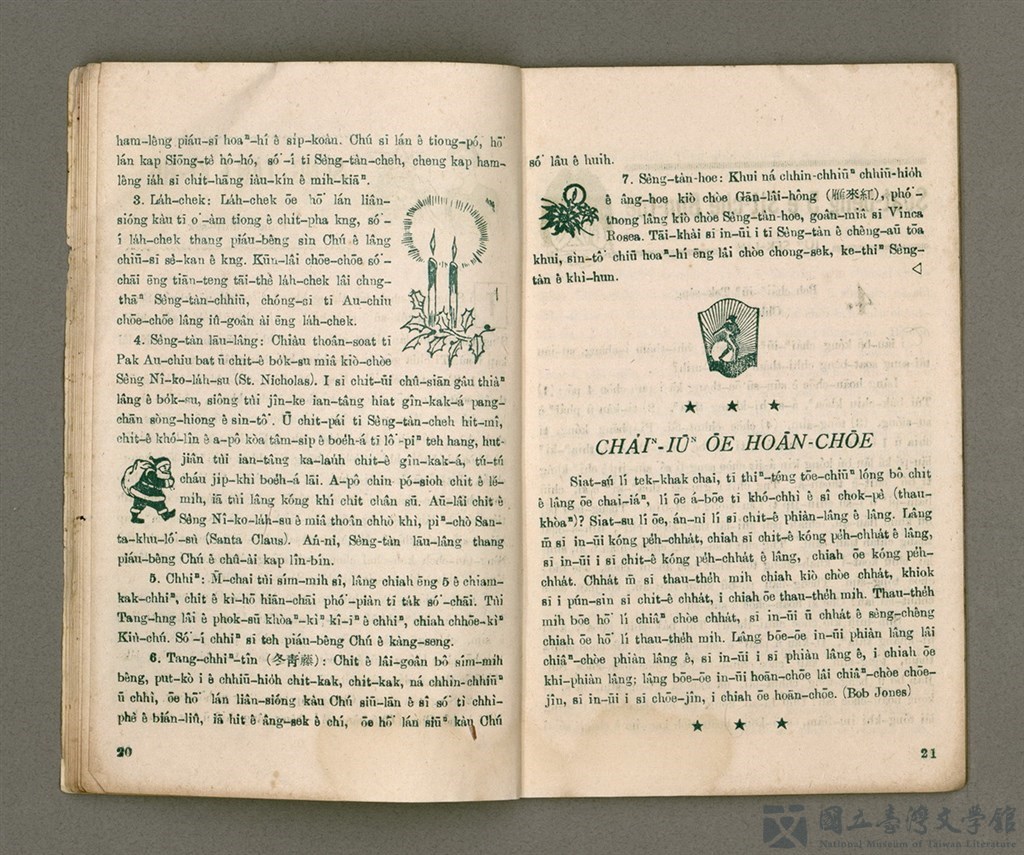 ham-lêng piáu-sī hoaⁿ-hí ê si̍p-koàn. Chú sī lán ê tiong-pó, hō͘
lán kap Siōng-tè hô-hó, só͘-í tī Sèng-tàn-cheh, cheng kap ham-
lêng iáh sī chit-hāng iàu-kín ê mih-kiāⁿ.
3. Láh-chek: Láh-chek ōe hō͘ lán liân-
sióng kàu tī o͘-àm tiong ê chit-pha kng, só͘-
í láh-chek thang piáu-bêng sìn Chú ê lâng
chiū-sī sè-kan ê kng. Kūn-lâi chōe-chōe só͘-
chāi ēng tiān-teng tāi-thè láh-chek lâi chng-
thāⁿ Sèng-tàn-chhiū, chóng-sī tī Au-chiu
chōe-chōe lâng iû-goân ài ēng láh-chek.
4. Sèng-tàn lāu-lâng: Chiàu thoân-soat tī
Pak Au-chiu bat ū chit-ê bo̍k-su miâ kiò-chòe
Sèng Nî-ko-láh-su (St. Nicholas). I sī chit-ūi chū-siān gâu thiàⁿ
lâng ê bo̍k-su, siông tùi jîn-ke ian-tâng hiat gîn-kak-á pang-
chān sòng-hiong ê sìn-tô͘. Ū chit-pái tī Sèng-tàn-cheh hit-mî,
chit-ê khó-lîn ê a-pô kòa tâm-sip ê boéh-á tī lô͘-piⁿ teh hang, hut-
jiân tùi ian-tâng ka-laúh chit-ê gîn-kak-á, tú-tú
cháu ji̍p-khì boéh-á lāi. A-pô chin pó-sioh chit ê lé-
mih, iā tùi lâng kóng khí chit chân sū. Aū-lâi chit ê
Sèng Nî-ko-láh-su ê miâ thoân chhò khì, pìⁿ-chò San-
ta-khu-ló͘-sù (Santa Claus). Án-ni, Sèng-tàn lāu-lâng thang
piáu-bêng Chú ê chû-ài kap lîn-bín.
5. Chhiⁿ: M̄-chai tùi sím-mih sî, lâng chiah ēng 5 ê chiam-
kak-chhiⁿ, chit ê kì-hō hiān-chāi phó͘-piàn tī ta̍k só͘-chāi. Tùi
Tang-hng lâi ê phok-sū khòaⁿ-kìⁿ kî-îⁿ ê chhiⁿ, chiah chhōe-kìⁿ
Kiù-chú. Só͘-í chhiⁿ sī teh piáu-bêng Chú ê kàng-seng.
6. Tang-chhiⁿ-tîn (冬靑藤): Chit ê lâi-goân bô sím-mih
bêng, put-kò i ê chhiū-hio̍h chit-kak, chit-kak, ná chhin-chhiūⁿ
ū chhì, ōe hō͘ lán liân-sióng kàu Chú siū-lān ê sî só͘ tì chhì-
phè ê bián-liû, iā hit ê âng-sek ê chí, ōe hō͘ lán siūⁿ kàu Chú
20
só͘ lâu ê huih.
7. Sèng-tàn-hoe: Khui ná chhin-chhiūⁿ chhiū-hio̍h
ê âng-hoe kiò chòe Gān-lâi-hông (雁來紅), phó͘-
thong lâng kiò chòe Sèng-tàn-hoe, goân-miâ sī Vinca
Rosea. Tāi-khài sī in-ūi i tī Sèng-tàn ê chêng-aū tōa
khui, sìn-tô͘ chiū hoaⁿ-hí ēng lâi chòe chong-sek, ke-thiⁿ Sèng-
tàn ê khì-hun.
CHÁIⁿ-IŪⁿ ŌE HOĀN-CHŌE
Siat-sú lí tek-khak chai, tī thiⁿ-téng tōe-chiūⁿ lóng bô chit
ê lâng ōe chai-iáⁿ, lí ōe á-bōe tī khó-chhì ê sî chok-pè (thau-
khòaⁿ)? Siat-su lí ōe, án-ni lí sī chit-ê phiàn-lâng ê lâng. Lâng
m̄ sī in-ūi kóng pe̍h-chhát, chiah sī chit-ê kóng pe̍h-chhát ê lâng,
sī in-ūi i sī chit-ê kóng pe̍h-chhát ê lâng, chiah ōe kóng pe̍h-
chhát. Chhát m̄ sī thau-the̍h mih chiah kiò chòe chhát, khiok
sī i pún-sin sī chit-ê chhát, i chiah ōe thau-the̍h mih. Thau-the̍h
mih bōe hō͘ lí chiâⁿ chòe chhát, sī in-ūi ū chhát ê sèng-chêng
chiah ōe hō͘ lí thau-the̍h mih. Lâng bōe-ōe in-ūi phiàn lâng lâi
chiâⁿ-chòe phiàn lâng ê, sī in-ūi i sī phiàn lâng ê, i chiah ōe
khì-phiàn lâng; lâng bōe-ōe in-ūi hoān-chōe lâi chiâⁿ-chòe chōe-
jîn, sī in-ūi i sī chōe-jîn, i chiah ōe hoān-chōe. (Bob Jones)
21
國立臺灣文學館
National Museum of Taiwan Literature